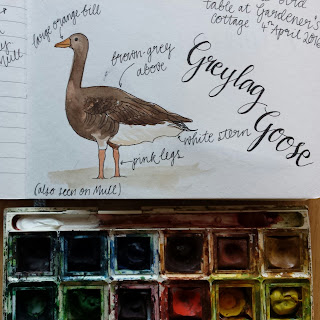 large orange bill
brown-grey
above
table at Gardener's
cottage 4th April 2016
Greylag
Goose
white stern
pink legs
(also seen on Mull)
Mull